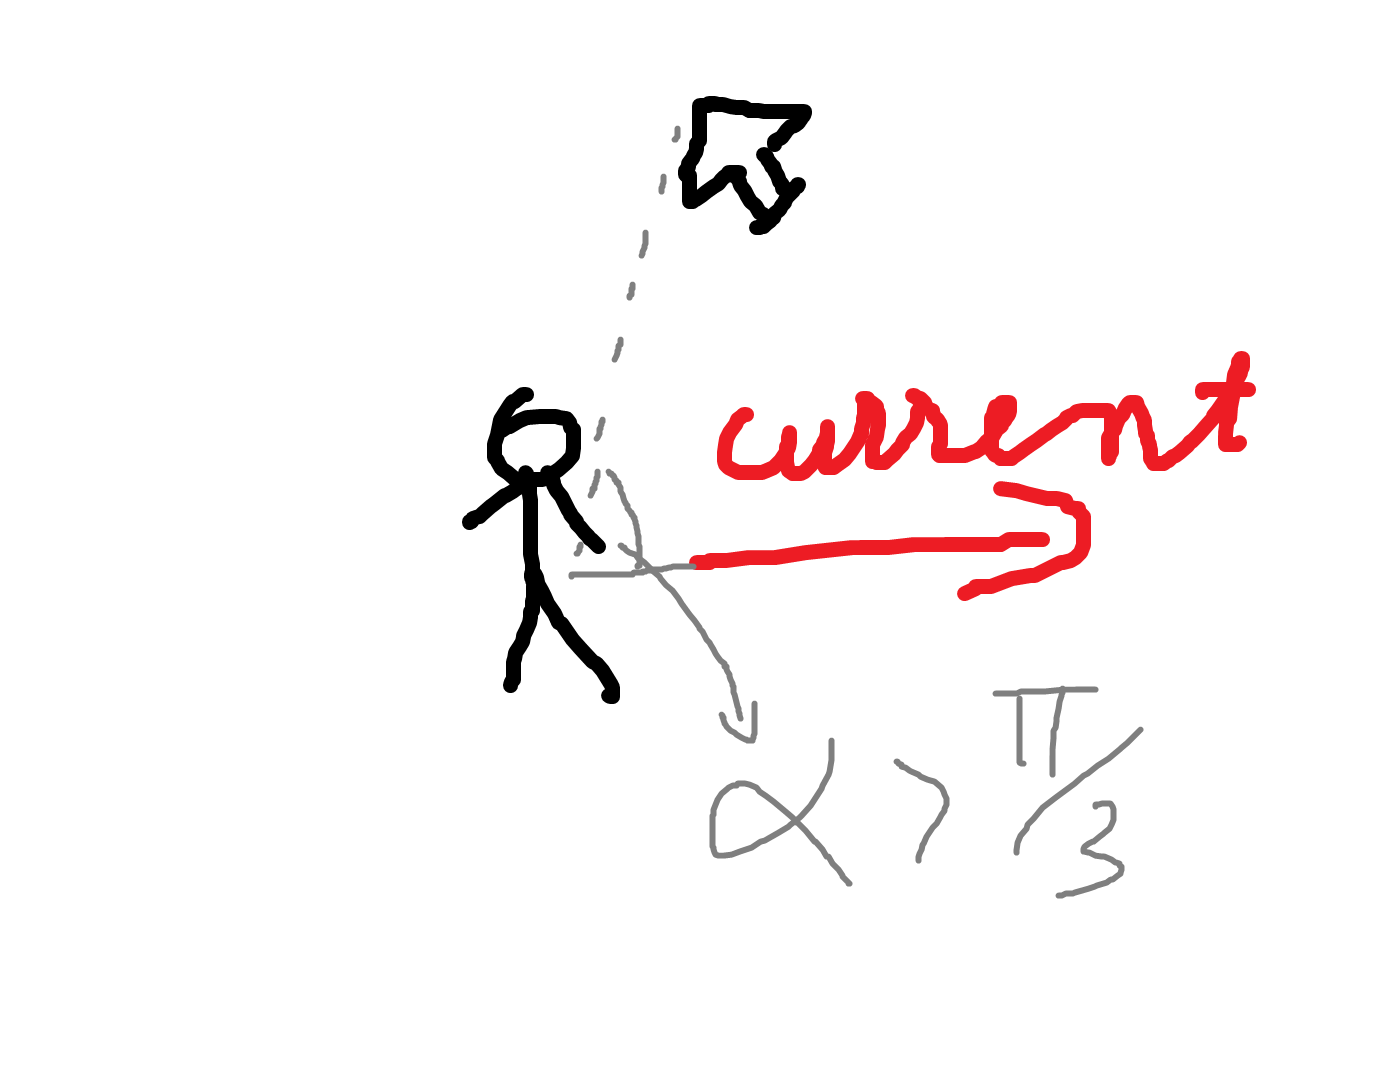 current
α > π/3